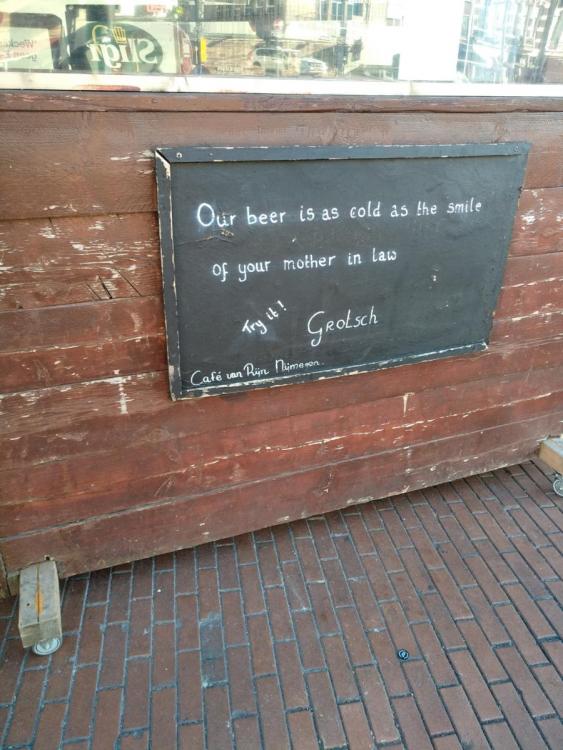 Our beer is as cold as the smile
of your mother in law
Try it!
Grolsch
Café van Rijn Nijmegen.